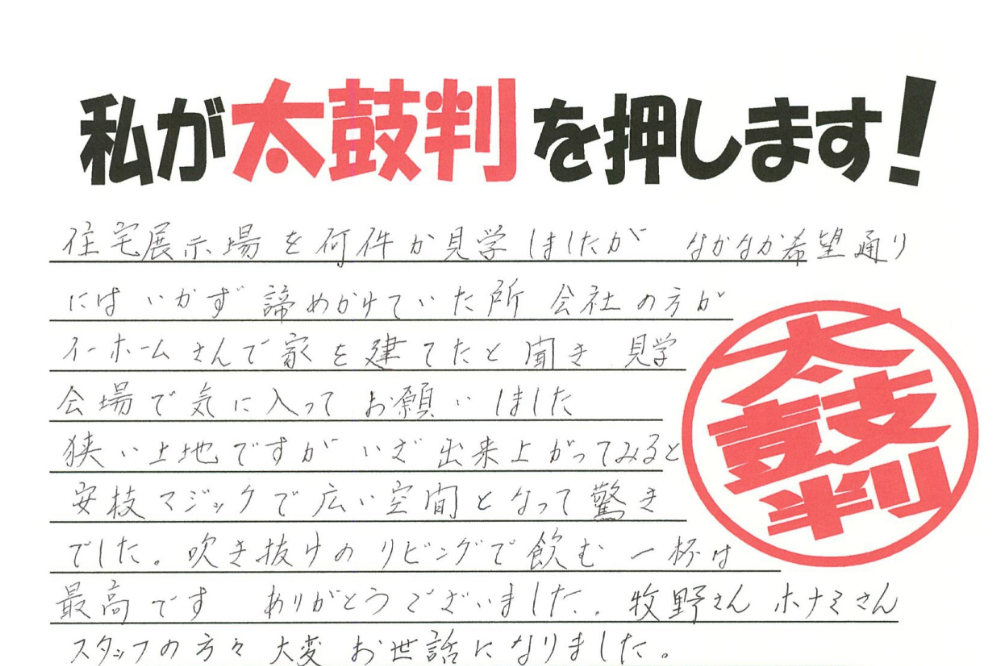 私が太鼓判を押します!
住宅展示場を何件か見学しましたが なかなか希望通り
にはいかず 諦めかけていた所 会社の方が
イーホームさんで家を建てたと聞き 見学
会場で気に入って お願いしました
狭い土地ですが いざ出来上がってみると
安枝マジックで広い空間となって驚き
でした。吹き抜けのリビングで飲む一杯は
最高です ありがとうございました。牧野さん ホナミさん
スタッフの方々 大変 お世話になりました。
太鼓判